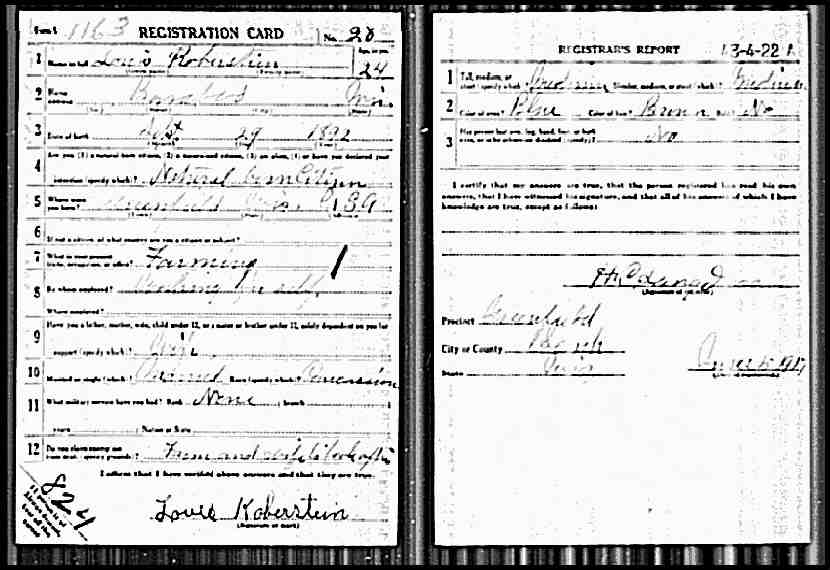 Form 1 1163 REGISTRATION CARD No. 28
1 Name in full Louis Koberstein Age, in yrs. 24
2 Home address Wis.
3 Date of birth Sept 29 1892
4 Are you (1) a natural born citizen, (2) a naturalized citizen, (3) an alien, (4) or have you declared your
intention (specify which)? Natural born Citizen
5 Where were you born? Greenfield Wis.
6 If not a citizen, of what country are you a citizen or subject?
7 What is your present trade, occupation, or office? Farming 1
8 By whom employed? Working for self
Where employed?
9 Have you a father, mother, wife, child under 12, or a sister or brother under 12, solely dependent on you for
support (specify which)? Wife
10 Married or single (which)? Married Race (specify which)? Caucassion
11 What military service have you had? Rank None ; branch ;
years ; Nation or State
12 Do you claim exemption from draft (specify grounds)? Farm and wife to look after
I affirm that I have verified above answers and that they are true.
824
Louis Koberstein
(Signature or mark)
REGISTRAR'S REPORT 13-4-22 A
1 Tall, medium, or short (specify which)? Medium Slender, medium, or stout (which)? Medium
2 Color of eyes? Blue Color of hair? Brown Bald? No
3 Has person lost arm, leg, hand, foot, or both eyes, or is he otherwise disabled (specify)? No
I certify that my answers are true, that the person registered has read his own
answers, that I have witnessed his signature, and that all of his answers of which I have
knowledge are true, except as follows:
(Signature of registrar)
Precinct Greenfield
City or County
State Wis
(Date of registration)